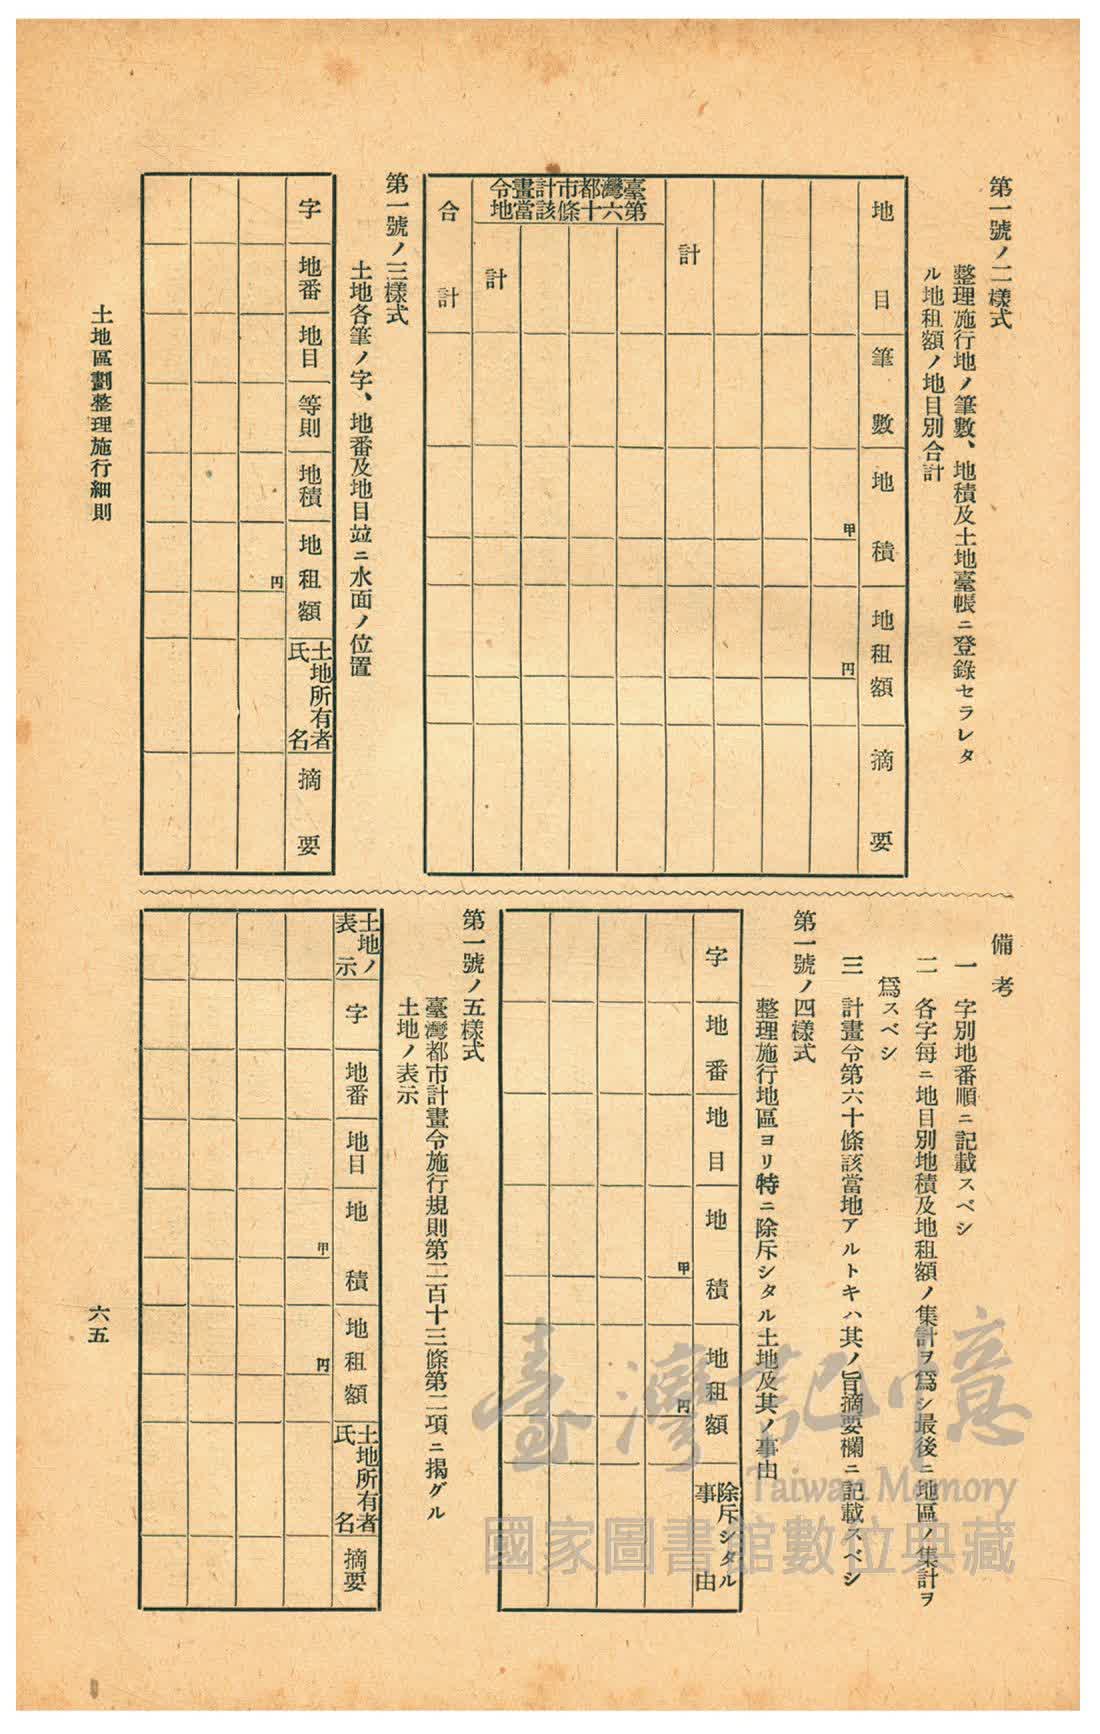 第一號ノ二樣式
整理施行地ノ筆數、地積及土地臺帳ニ登錄セラレタ
ル地租額ノ地目別合計
地目
筆數
地積
地租額
摘要
甲
円
計
臺灣都市計畫令
第六十條該當地
計
合計
第一號ノ三樣式
土地各筆ノ字、地番及地目竝ニ水面ノ位置
字
地番
地目
等則
地積
地租額
土地所有者
氏名
摘要
円
土地區劃整理施行細則
備考
一 字別地番順ニ記載スベシ
二 各字每ニ地目別地積及地租額ノ集計ヲ爲シ最後ニ地區ノ集計ヲ
爲スベシ
三 計畫令第六十條該當地アルトキハ其ノ旨摘要欄ニ記載スベシ
第一號ノ四樣式
整理施行地區ヨリ特ニ除斥シタル土地及其ノ事由
字
地番
地目
地積
地租額
除斥シタル
事由
甲
円
第一號ノ五樣式
臺灣都市計畫令施行規則第二百十三條第二項ニ揭グル
土地ノ表示
土地ノ
表示
字
地番
地目
地積
地租額
土地所有者
氏名
摘要
甲
円
六五
臺灣記憶
Taiwan Memory
國家圖書館數位典藏